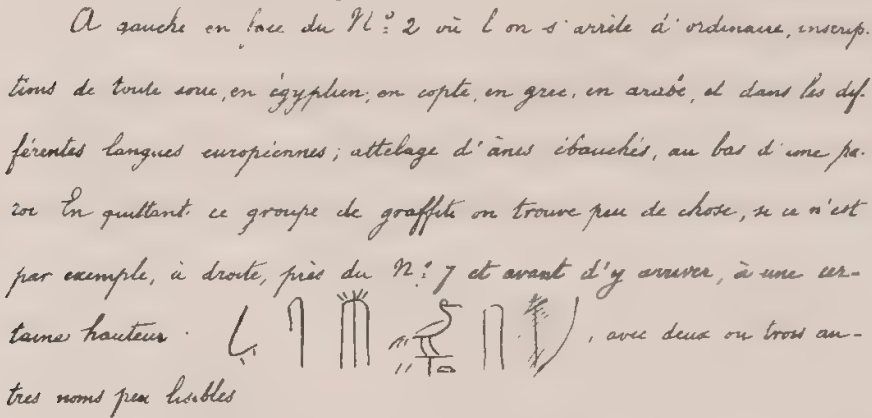 A gauche en face du N.º 2 où l'on s'arrête d'ordinaire, inscrip-
tions de toute sorte, en égyptien, en copte, en grec, en arabe, et dans les dif-
férentes langues européennes; attelage d'ânes ébauchés, au bas d'une pa-
roi En quittant ce groupe de graffiti on trouve peu de chose, si ce n'est
par exemple, à droite, près du N.º 7 et avant d'y arriver, à une cer-
taine hauteur . , avec deux ou trois au-
tres noms peu lisibles